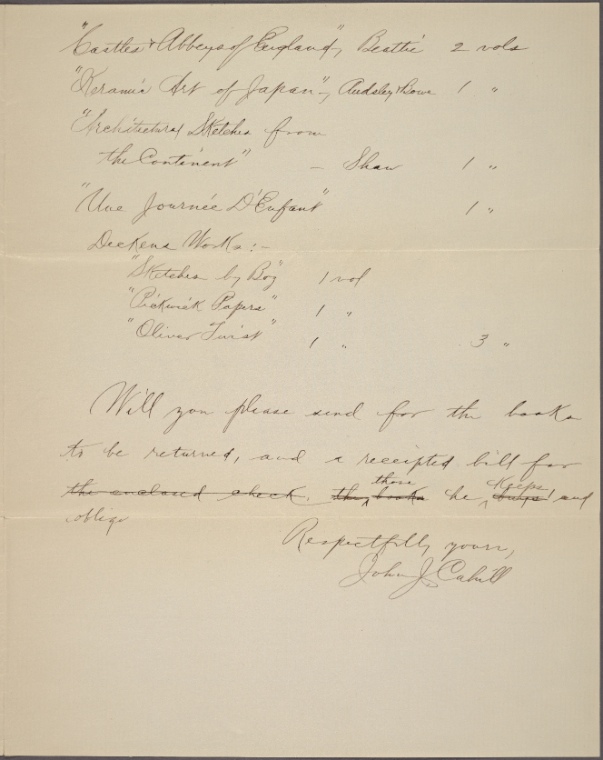 "Castles & Abbeys of England", Beattie 2 vols
"Keramic Art of Japan" - Audsley & Bowe 1 "
"Architectural Sketches from
the Continent" - Shaw 1 "
"Une Journée D'Enfant" 1 "
Dickens Works:-
"Sketches by Boz" 1 vol
"Pickwick Papers" 1 "
"Oliver Twist" 1 " 3 "
Will you please send for the books
to be returned, and a receipted bill for
the enclosed check. the books those he keeps and
oblige
Respectfully yours,
John J. Cahill